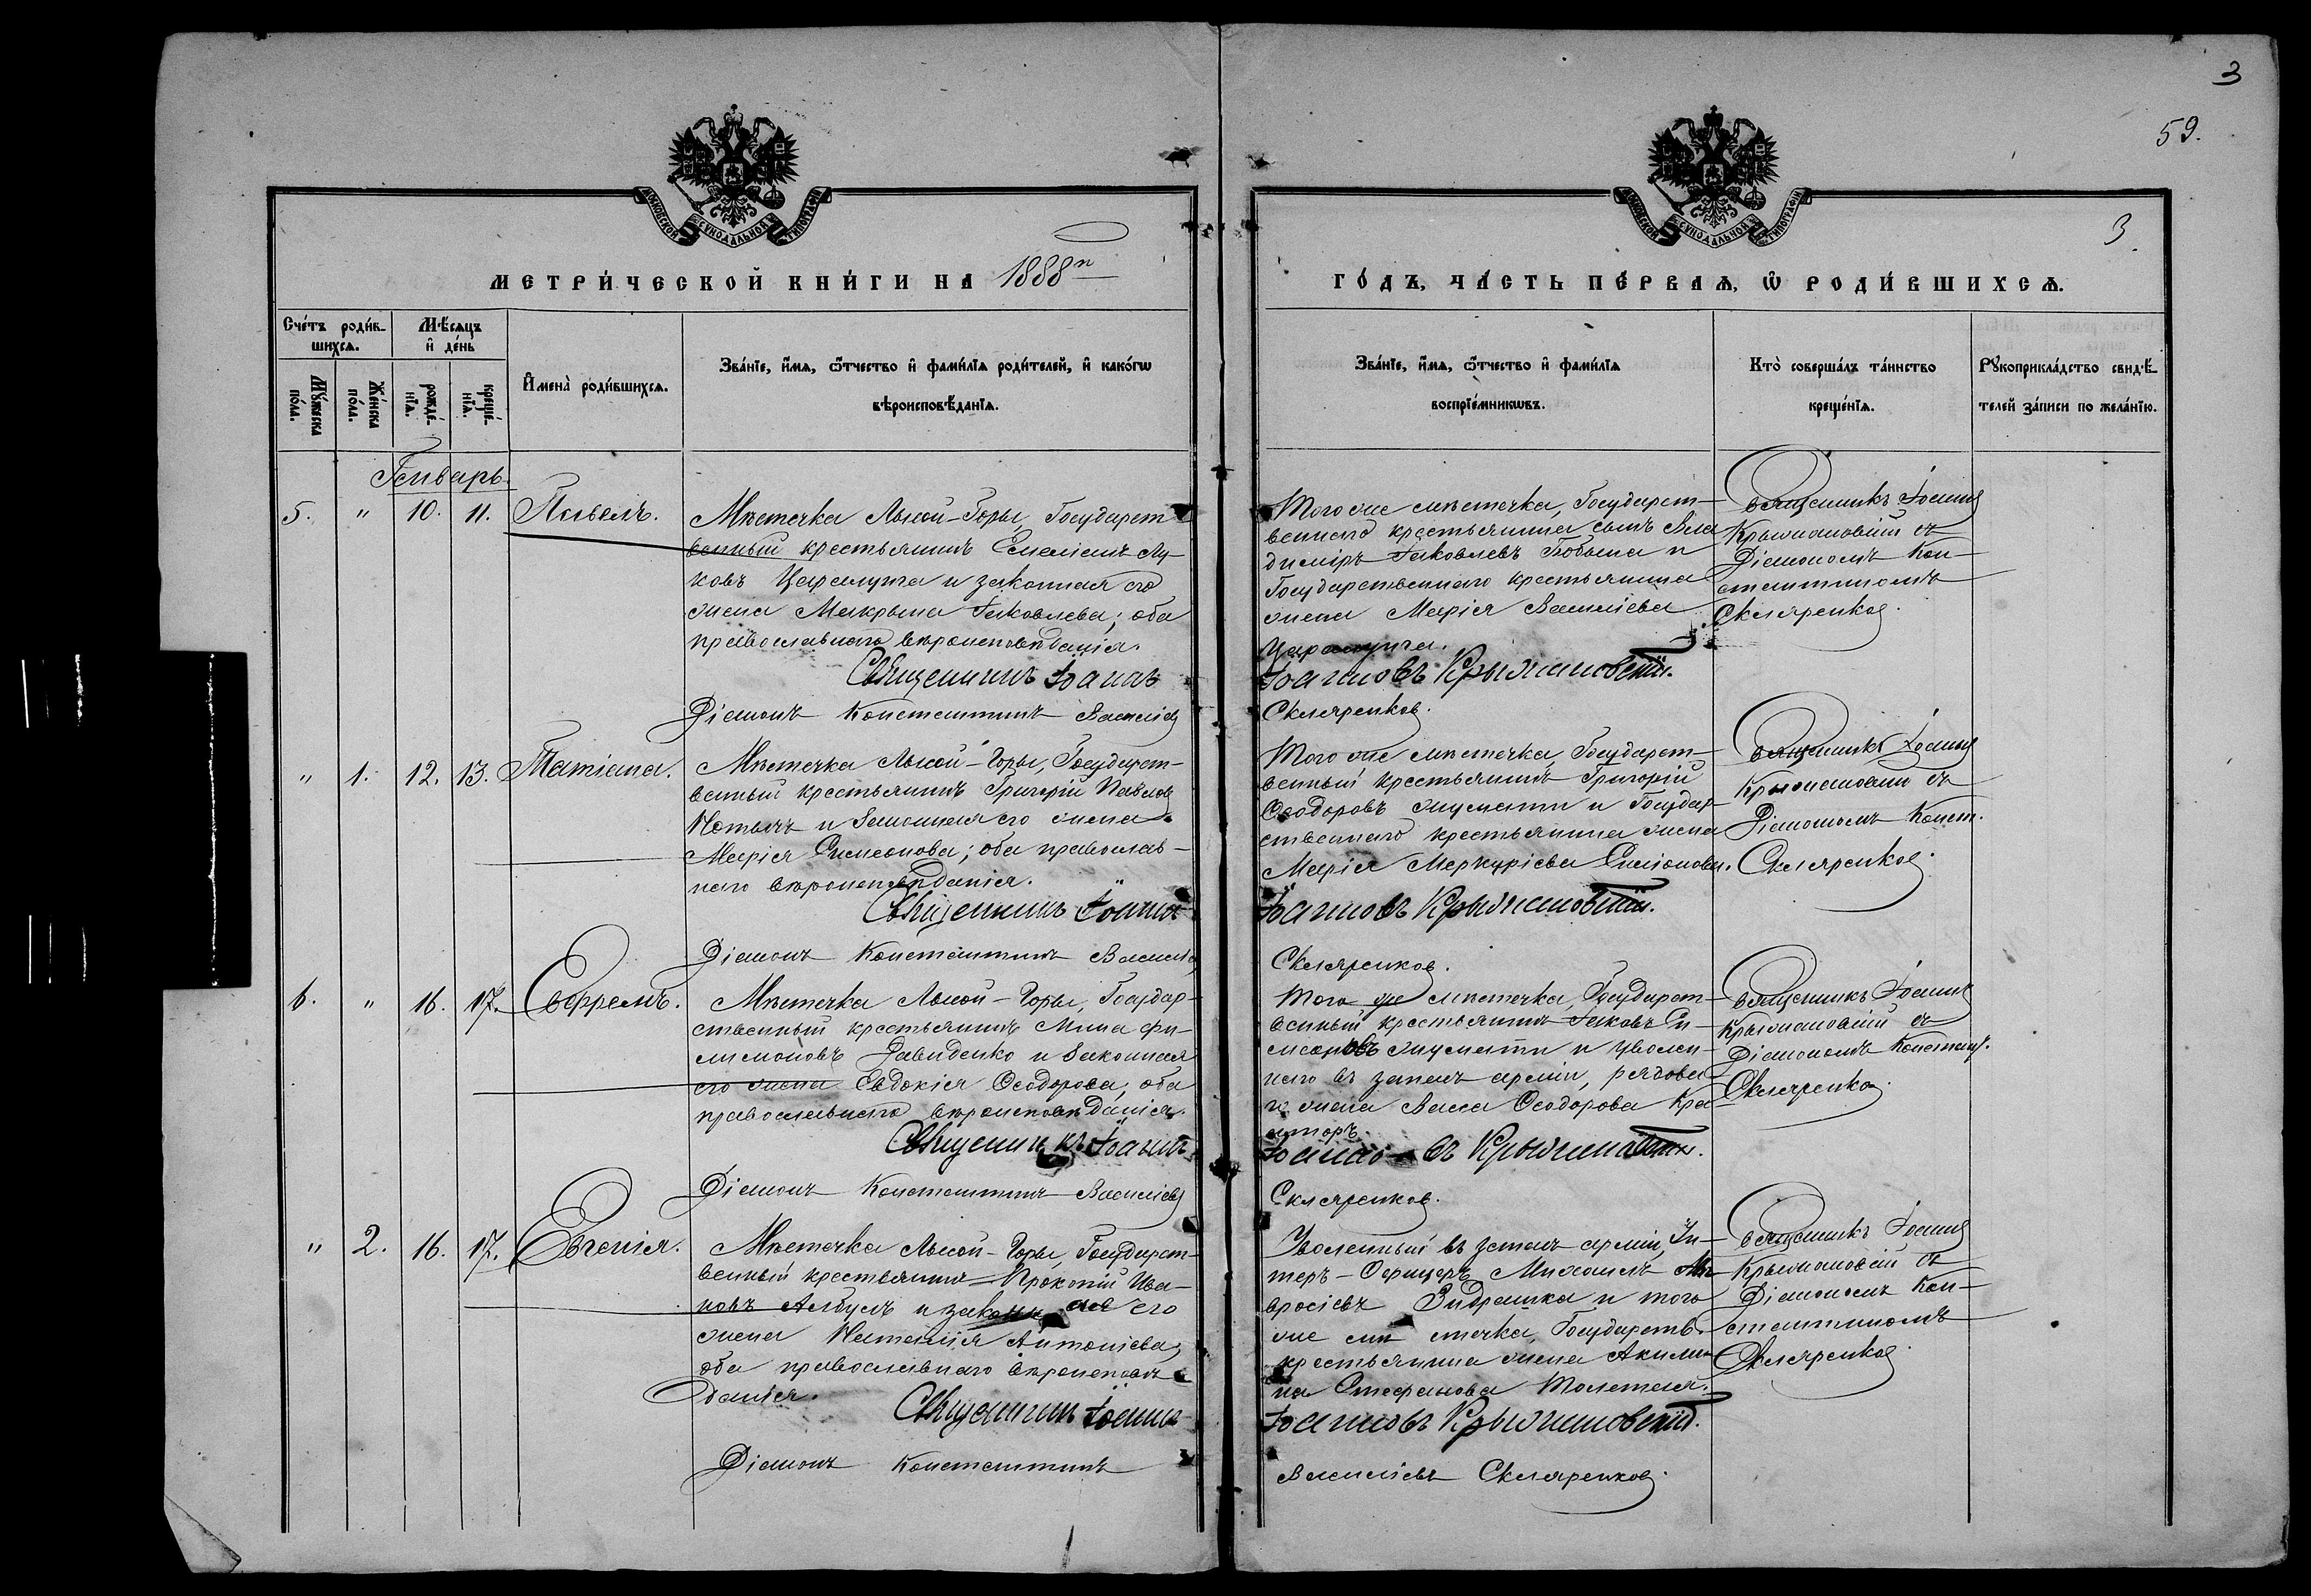 3
59.
3
МОСКОВСКОЙ СѴНОДАЛЬНОЙ ТИПОГРАФІИ
МОСКОВСКОЙ СѴНОДАЛЬНОЙ ТИПОГРАФІИ
МЕТРИ́ЧЕСКОЙ КНИ́ГИ НА 1888й
ГО́ДЪ, ЧА́СТЬ ПЕ́РВАѦ, Ѡ РОДИ́ВШИХСѦ.
Сче́тъ роди́в-
шихсѧ.
Мѣ́сѧцъ
и҆ де́нь
Мꙋ́жеска
по́ла.
Же́нска
по́ла.
рожде́-
нїѧ.
креще́-
нїѧ.
И҆мена̀ роди́вшихсѧ.
Зва́нїе, и҆́мѧ, ѻ҆́тчество и҆ фами́лїѧ роди́телей, и҆ како́гѡ
вѣроисповѣ́данїѧ.
Зва́нїе, и҆́мѧ, ѻ҆́тчество и҆ фами́лїѧ
воспрїе́мникѡвъ.
Кто̀ соверша́лъ та́инство
креще́нїѧ.
Рꙋкоприкла́дство свидѣ́-
телей за́писи по жела́нїю.
Генварь.
5. " 10. 11. Павелъ.
Мѣстечка Лысой-Горы, Государст-
венный крестьянинъ Емеліанъ Лу-
ковъ Царалунга и законная его
жена Макрына Іаковлева; оба
православнаго вѣроисповѣданія.
Священникъ Іоаннъ
Діаконъ Константинъ Василіев
Того же мѣстечка, Государст-
веннаго крестьянина сынъ Вла
диміръ Іаковлевъ и
Государственнаго крестьянина
жена Марія Василіева
Царалунга.
Іоанновъ Крыжановскій.
Скляренков.
Священникъ Іоанн
Крыжановскій съ
Діакономъ Кон-
стантиномъ
Скляренков.
" 1. 12. 13. Татіана.
Мѣстечка Лысой-Горы, Государст-
венный крестьянинъ Григорій Павлов
и законная его жена
Марія Симеонова; оба православ-
наго вѣроисповѣданія.
Священникъ Іоаннъ
Діаконъ Константинъ Василіе
Того же мѣстечка, Государст-
венный крестьянинъ Григорій
Ѳеодоровъ и Государ-
ственнаго крестьянина жена
Марія Меркуріева
Іоанновъ Крыжановскій.
Скляренков.
Священникъ Іоанн
Крыжановскій съ
Діакономъ Конст.
Скляренков.
6. " 16. 17. Ефремъ.
Мѣстечка Лысой-Горы, Государ-
ственный крестьянинъ Мина Фи-
лимоновъ Давиденко и законная
его жена Евдокія Ѳеодорова, оба
православнаго вѣроисповѣданія.
Священникъ Іоаннъ
Діаконъ Константинъ Василіев
Того же мѣстечка, Государст-
венный крестьянинъ Іаковъ Си-
меоновъ и уволен-
наго въ запасъ арміи, рядова-
го жена Васса Ѳеодорова

Іоанновъ Крыжановскій.
Скляренков.
Священникъ Іоаннъ
Крыжановскій съ
Діакономъ Константин.
Скляренков.
" 2. 16. 17. Евгенія.
Мѣстечка Лысой-Горы, Государст-
венный крестьянинъ Прокопій Ива-
новъ и законная его
жена Наталія Антоніева,
оба православнаго вѣроисповѣ-
данія.
Священникъ Іоаннъ
Діаконъ Константинъ
Уволенный въ запасъ арміи, Ун-
теръ-Офицеръ Михаилъ Ам-
вросіевъ и того
же мѣстечка, Государств.
крестьянина жена Акили-
на Стефанова
Іоанновъ Крыжановскій.
Василіевъ Скляренков.
Священникъ Іоанн
Крыжановскій съ
Діакономъ Кон-
стантиномъ
Скляренков.